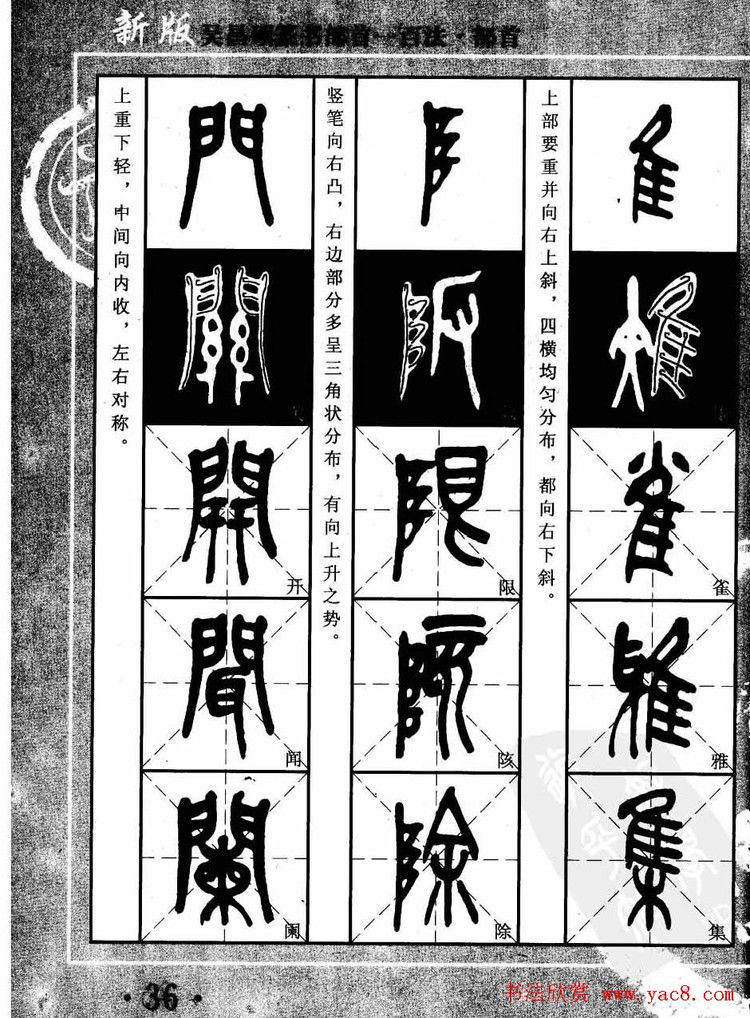 新版 吴昌硕篆书部首一百法·部首
隹
雉
雀
雀
雅
雅
集
集
上部要重并向右上斜，四横均匀分布，都向右下斜。
阝
限
限
陔
陔
除
除
竖笔向右凸，右边部分多呈三角状分布，有向上升之势。
門
關
開
开
聞
闻
闌
阑
上重下轻，中间向内收，左右对称。
·36·
书法欣赏 www.yac8.com